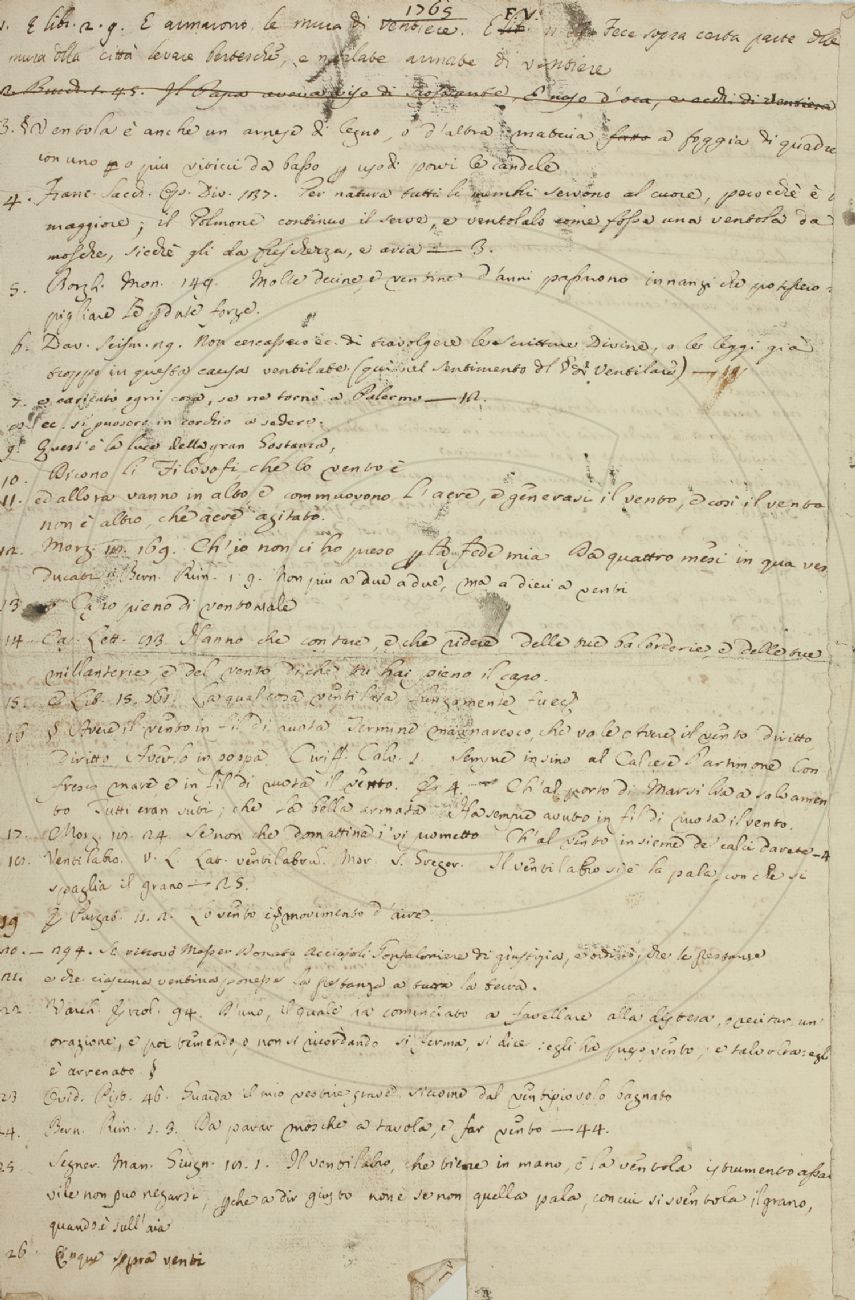 1765
F. V.
1. E libr. 2. 9. E armarono le mura di ventiere. E Fece sopra certa parte delle
mura della città levare bertesche, e murlate armate di ventiere
2. Burch. 1. 45. Il Papa aveva viso di E naso d'oca, e occhi di Ventiera
3. § Ventola è anche un arnese di legno, o d'altra materia fatto a foggia di quadre
con uno o più viticci da basso p uso di porvi le candele
4. Franc. Sacch. Op. Div. 137. Per natura tutti li membri servono al cuore, perocchè è
maggiore; il Polmone continuo il serve, e ventolalo come fosse una ventola da
mosche, sicchè gli da freschezza, e aria — 3.
5. Borgh. Mon. 149. Molte decine, e ventine d'anni passarono innanzi che potessero
ripigliare le pdute forze.
6. Dav. Scism. 29. Non cercassero ec. di travolgere le scritture Divine, o le leggi già
troppo in questa causa ventilate (qui nel sentimento del § di Ventilare) —
7. e caricato ogni cosa, se ne tornò a Palermo — 12.
8. ec. si puosero in cerchio a sedere.
9. Quest'è la luce della gran Gostanza,
10. Dicono li Filosofi che lo vento è
11. ed allora vanno in alto e commuovono l'aere, e generasi il vento, e così il vento
non è altro, che aere agitato.
12. Morg. 18. 169. Ch'io non ci ho preso p la fede mia Da quattro mesi in qua ven
Ducati § Bern. Rim. 1. 9. Non più a due a due, ma a dieci a venti
13. Capo pieno di vento vale
14. Ca. Lett. 93. Hanno che contare, e che ridere delle tue balorderie, e delle tue
millanterie, e del vento di che tu hai pieno il capo.
15. E Lib. 15. 361. La qual cosa ventilata lungamente fu ec.
16. § Avere il vento in fil di ruota Termine marinaresco, che vale Avere il vento diritto
diritto Averlo in poppa. Ciriff. Calv. 1. Sempre insino al Calcese l'artimone Con
fresco mare e in fil di ruota il vento. E 4. — Ch'al porto di Marsilia a salvamen
to Tutti eran surti; che la bella armata Ha sempre avuto in fil di ruota il vento.
17. Morg. 18. 24. Se non che domattina i' vi prometto Ch'al vento insieme de' calci darete — 4
18. Ventilabro. V. L. Lat. ventilabrū. Mor. S. Gregor. Il ventilabro si è la pala, con che si
spaglia il grano — 25.
19 E Purgat. 11. 2. Lo vento è movimento d'aire.
20. — 294. Si ritrovò Messer Donato Acciajoli Gonfaloniere di giustizia, e ordinò, che le prestanze
21. e che ciascuna ventina ponesse la prestanza a tutta la terra.
22 Varch. Ercol. 94. D'uno, il quale ha cominciato a favellare alla distesa, o recitar un
orazione, e poi temendo, o non si ricordando si ferma, si dice: egli ha preso vento; e talvolta: egli
è arrenato. §
23 Ovid. Pist. 46. Guarda il mio vestire grave siccome dal ventipiovolo bagnato
24. Bern. Rim. 1. 3. Da parar mosche a tavola, e far vento — 44.
25 Segner. Man. Giugn. 18. 1. Il ventilabro, che tiene in mano, è la ventola istrumento assai
vile non può negarsi, pche a dir giusto non è se non quella pala, con cui si sventola il grano,
quando è sull'aia
26. Cinque sopra venti